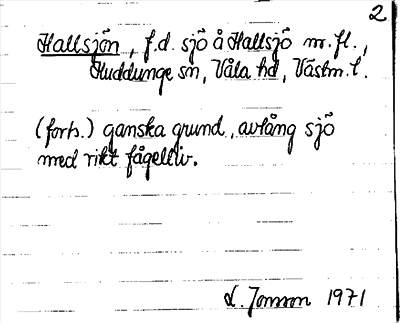 2
Hallsjön, f.d. sjö å Hallsjö m.fl.,
Huddunge sn, Våla hd, Västm. l.
(forts.) ganska grund, avlång sjö
med rikt fågelliv.
L. Jonson 1971